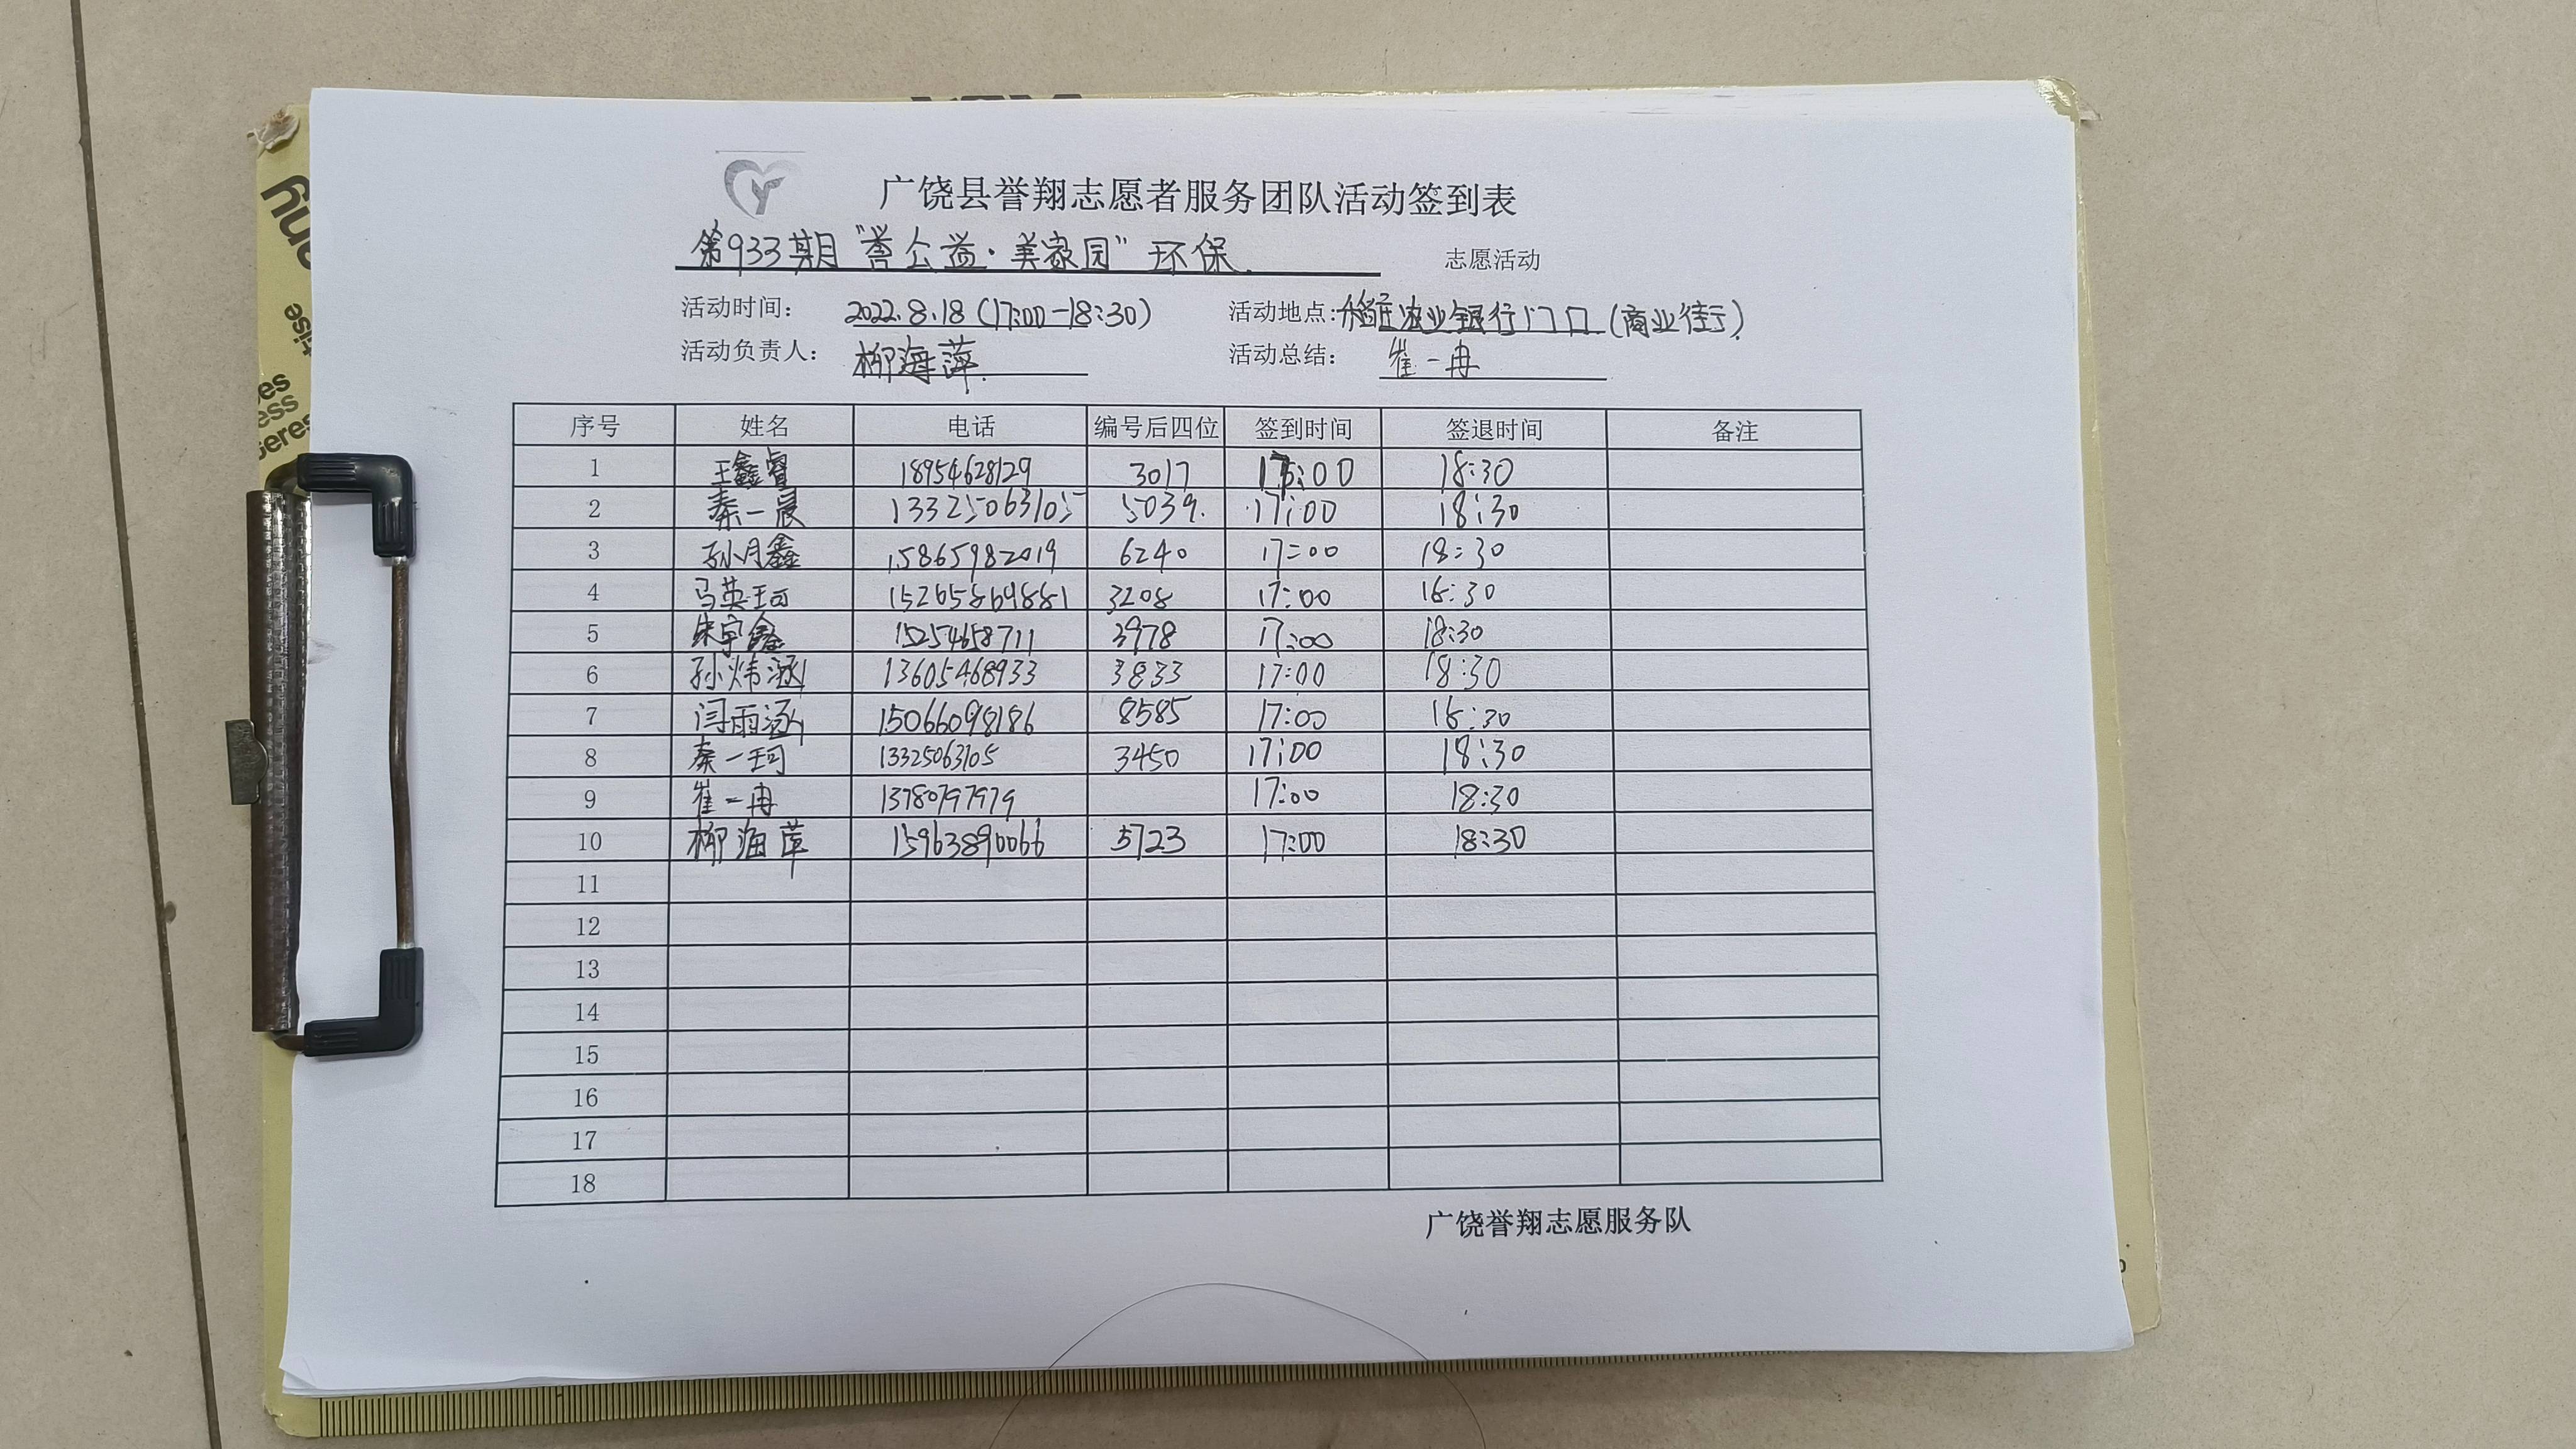 广饶县誉翔志愿者服务团队活动签到表
第933期“誉公益·美家园”环保 志愿活动
活动时间： 2022.8.18（17:00-18:30） 活动地点：稻庄农业银行门口（商业街）
活动负责人： 柳海萍 活动总结： 崔一冉
序号 姓名 电话 编号后四位 签到时间 签退时间 备注
1 王鑫睿 18954628129 3017 17:00 18:30
2 秦一晨 13325063105 5039. 17:00 18:30
3 孙月鑫 15865982019 6240 17:00 18:30
4 马英珂 15265869881 3208 17:00 18:30
5 朱宇鑫 15254658711 3978 17:00 18:30
6 孙炜涵 13605468933 3833 17:00 18:30
7 闫雨涵 15066098186 8585 17:00 18:30
8 秦一珂 13325063105 3450 17:00 18:30
9 崔一冉 13780797979 17:00 18:30
10 柳海萍 15963890066 5723 17:00 18:30
11
12
13
14
15
16
17
18
广饶誉翔志愿服务队